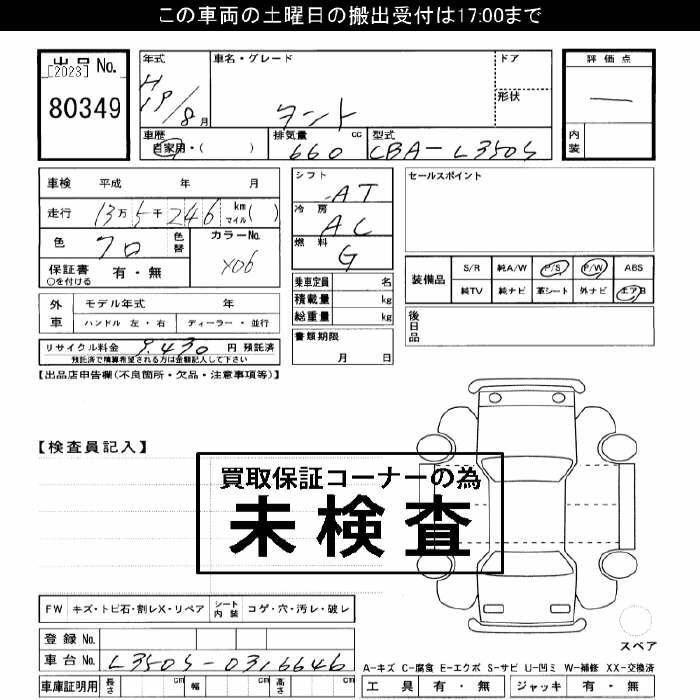 この車両の土曜日の搬出受付は17:00まで
出品 No.
[2023]
80349
年式
H19/8 月
車名・グレード
タント
ドア
形状
評価点
—
内装
車歴
自家用・( )
排気量 cc
660
型式
CBA-L350S
車検 平成 年 月
走行 13万5千246 km マイル( )
色 クロ 色替
カラーNo.
X06
保証書 有・無
○を付ける
外車
モデル年式 年
ハンドル 左・右
ディーラー・並行
リサイクル料金 9,430 円 預託済
預託済で積算希望される方は金額記入して下さい
シフト AT
冷房 AC
燃料 G
乗車定員 名
積載量 kg
総重量 kg
書類期限
月 日
セールスポイント
装備品
S/R 純A/W P/S P/W ABS
純TV 純ナビ 革シート 外ナビ エアB
後日品
【出品店申告欄(不良箇所・欠品・注意事項等)】
【検査員記入】
買取保証コーナーの為
未検査
FW キズ・トビ石・割レX・リペア
シート内装 コゲ・穴・汚レ・破レ
登録 No.
車台 No. L350S-0316646
車庫証明用 長さ cm 幅 cm 高さ cm
スペア
A-キズ C-腐食 E-エクボ S-サビ U-凹ミ W-補修 XX-交換済
工具 有・無 ジャッキ 有・無